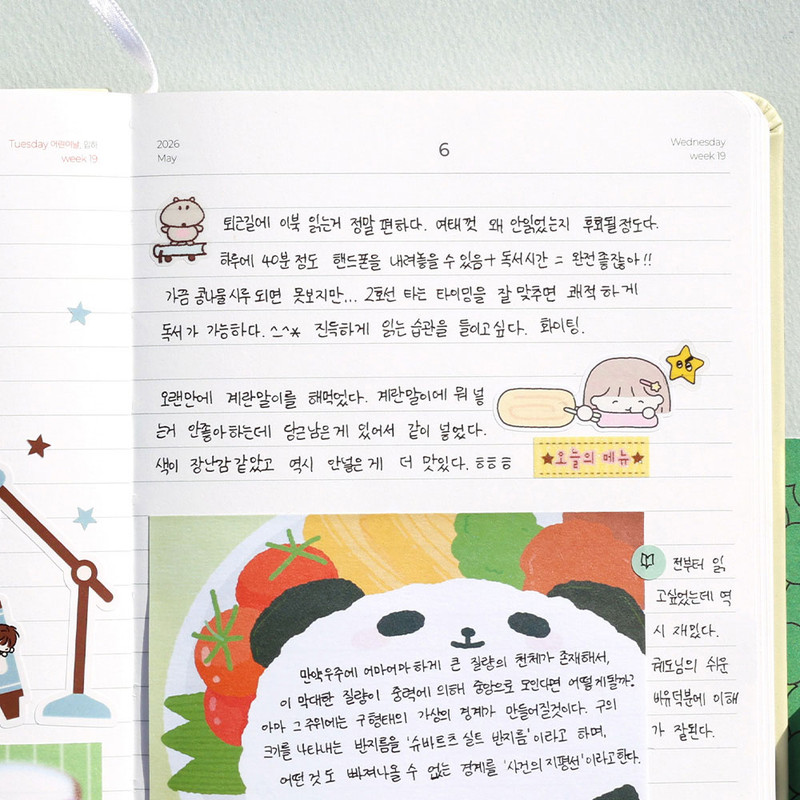 Tuesday 어린이날, 입하
week 19
2026
May
6
Wednesday
week 19
퇴근길에 이북 읽는거 정말 편하다. 여태껏 왜 안읽었는지 후회될정도다.
하루에 40분 정도 핸드폰을 내려놓을 수 있음 + 독서시간 = 완전좋잖아!!
가끔 콩나물시루 되면 못보지만... 2호선 타는 타이밍을 잘 맞추면 쾌적하게
독서가 가능하다. ^_^* 진득하게 읽는 습관을 들이고싶다. 화이팅.
오랜만에 계란말이를 해먹었다. 계란말이에 뭐 넣
는거 안좋아하는데 당근남은게 있어서 같이 넣었다.
색이 장난감같았고 역시 안넣은게 더 맛있다. ㅎㅎㅎ
오늘의 메뉴
만약 우주에 어마어마하게 큰 질량의 천체가 존재해서,
이 막대한 질량이 중력에 의해 중앙으로 모인다면 어떻게될까?
아마 그 주위에는 구형태의 가상의 경계가 만들어질것이다. 구의
크기를 나타내는 반지름을 '슈바르츠 실트 반지름'이라고 하며,
어떤 것도 빠져나올 수 없는 경계를 '사건의 지평선'이라고한다.
전부터 읽
고싶었는데 역
시 재밌다.
궤도님의 쉬운
비유덕분에 이해
가 잘된다.